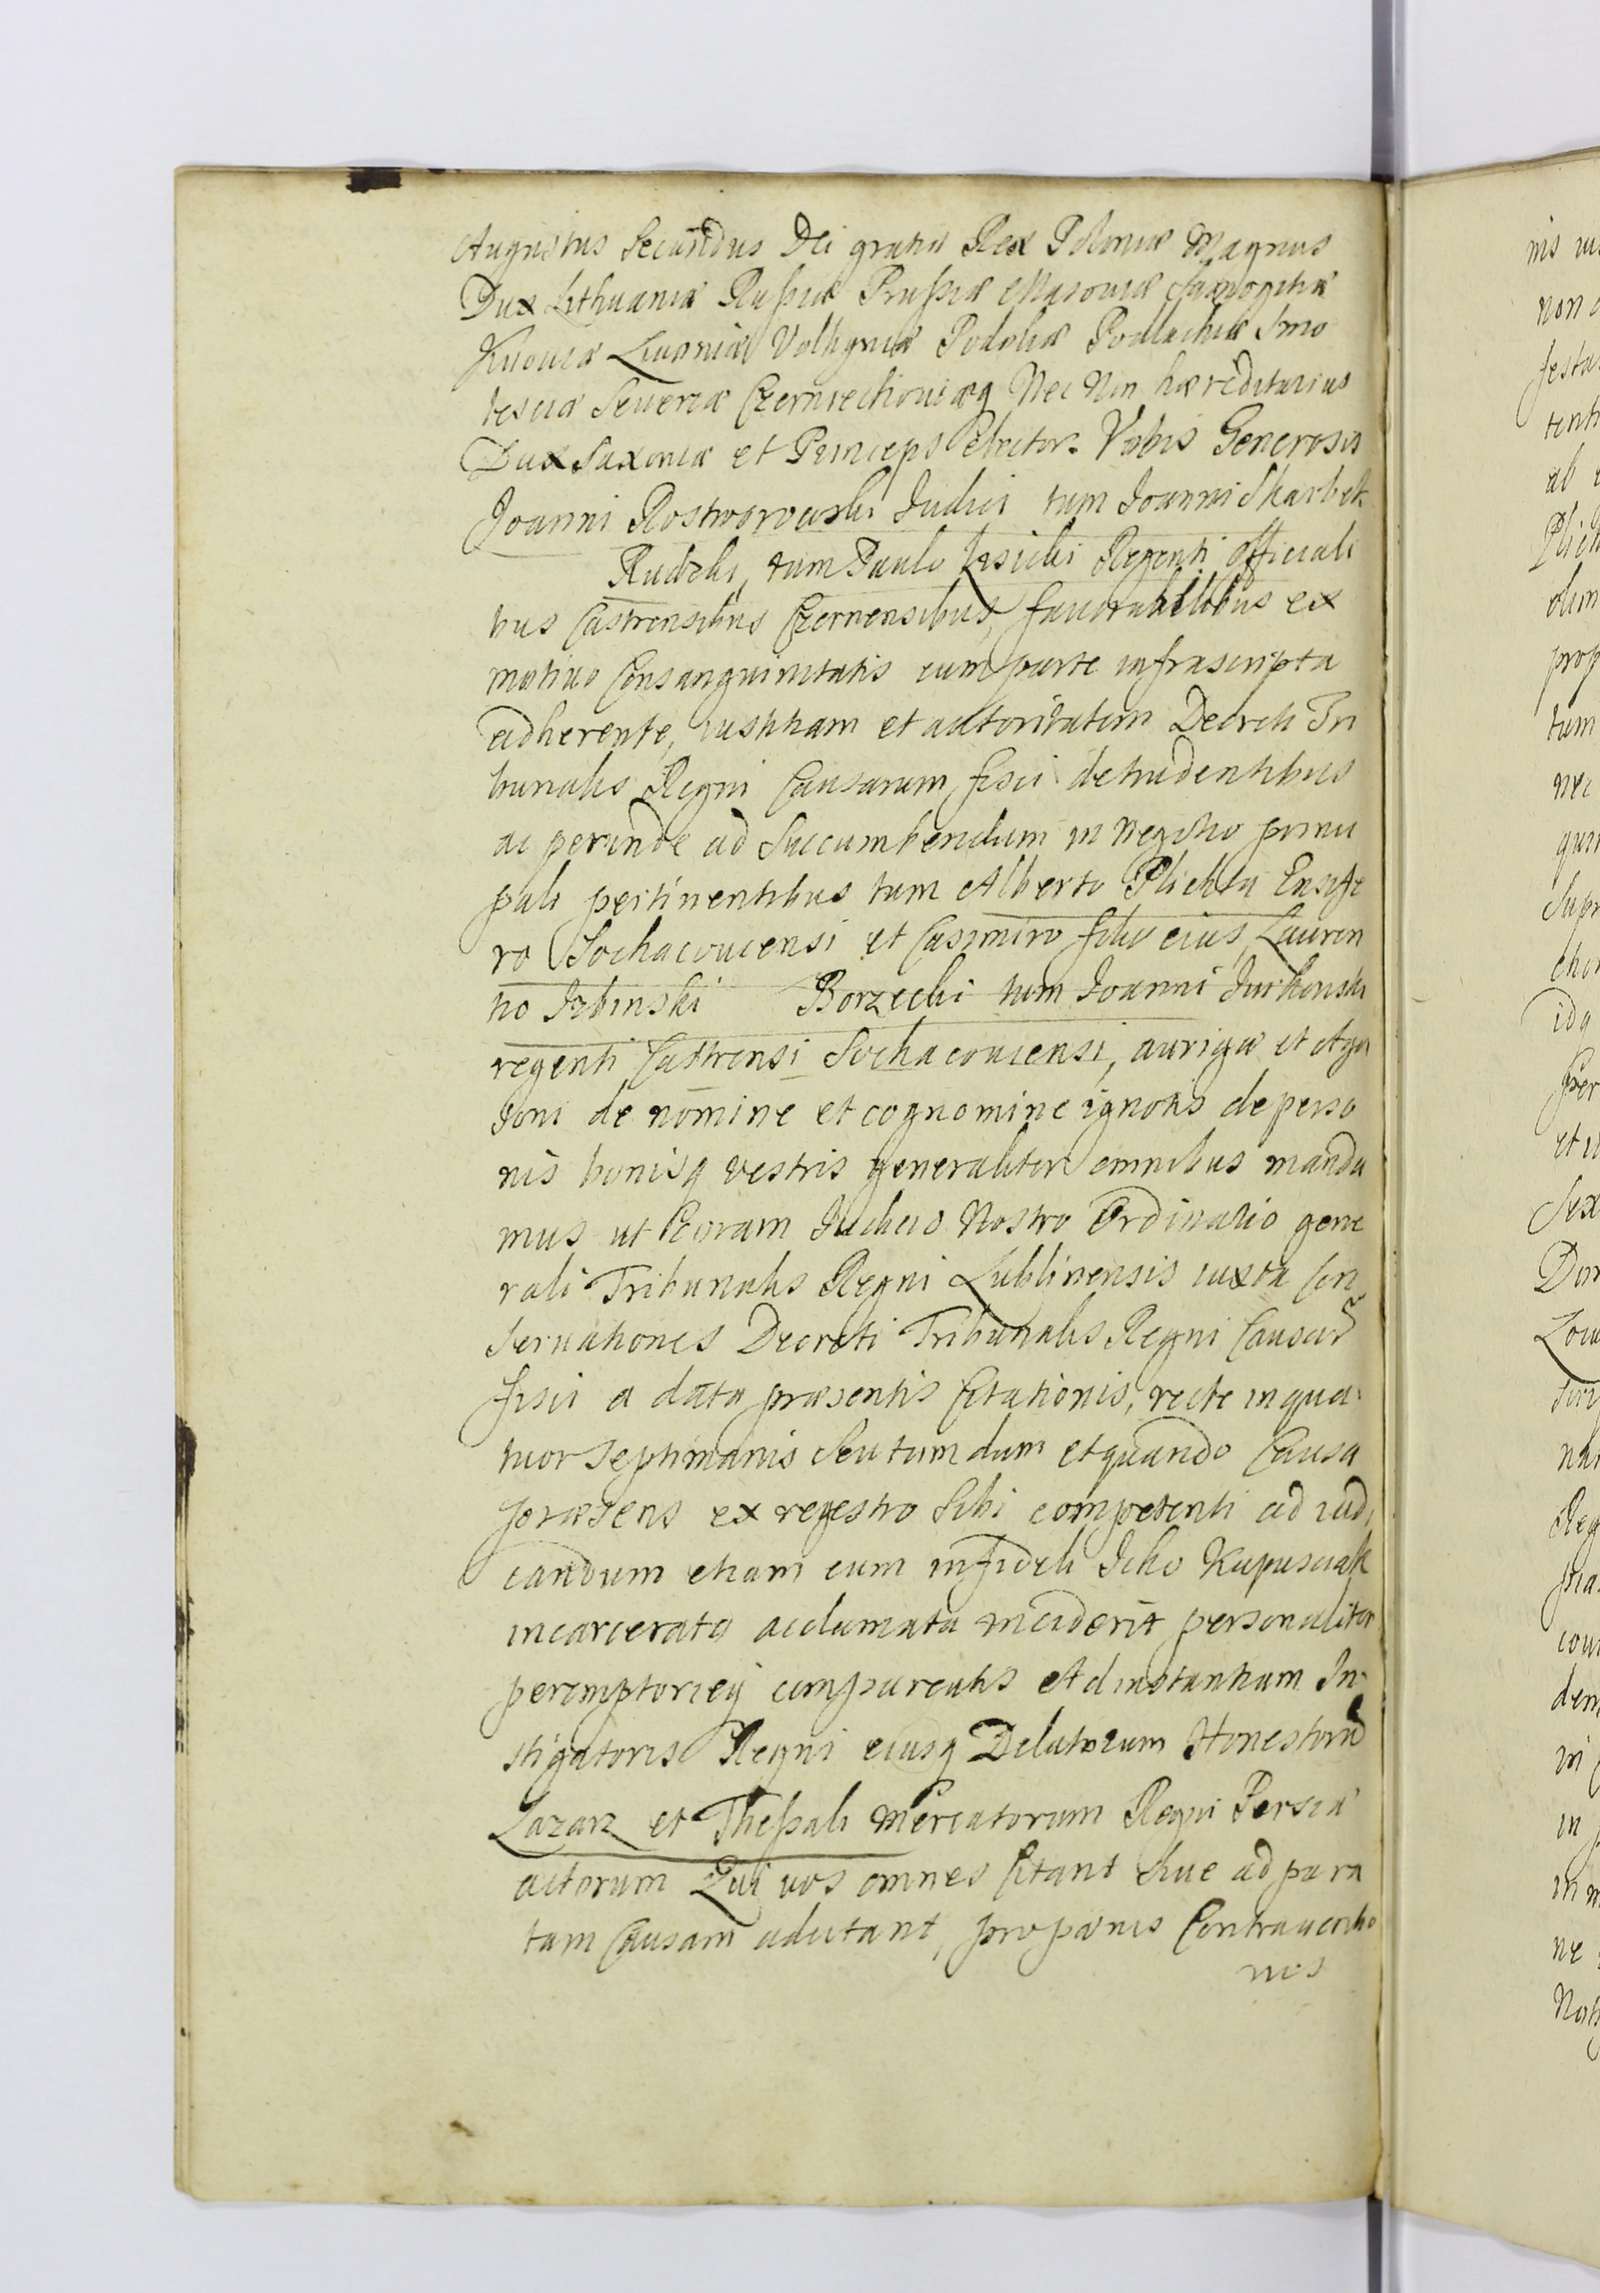 Augustus Secundus Dei gratia Rex Poloniæ Magnus
Dux Lithuaniæ Russiæ Prussiæ Masoviæ Samogitiæ
Kiioviæ Livoniæ Volhyniæ Podoliæ Podlachiæ Smo
lesciæ Severiæ Czerniechoviæq Nec Non hæreditarius
Dux Saxoniæ et Princeps Elector. Vobis Generosis
Joanni Rostworowski Judici tum Joanni Skarbek
Rudzki, tum Paulo Regenti Officiali
bus Castrensibus Czernensibus, favorabilibus ex
motivo Consanguinitatis cum parte infrascripta
adherente, iustitiam et autoritatem Decreti Tri
bunalis Regni Causarum fisci detrudentibus
ac perinde ad Succumbendum in negotio princi
pali pertinentibus tum Alberto Plichta Ensife
ro Sochacoviensi et Casimiro filio eius, Lauren
tio Izbinski Borzecki tum Joanni Jurkowski
regenti Castrensi Sochacoviensi, aurigæ et Aga
soni de nomine et cognomine ignotis de perso
nis bonisq vestris generaliter omnibus manda
mus ut Coram Judicio Nostro Ordinario gene
rali Tribunalis Regni Lublinensis iuxta Con
servationes Decreti Tribunalis Regni Causar
fisci a data præsentis Citationis, recte in qua
tuor septimanis Seu tum dum et quando Causa
præsens ex regestro Sibi competenti ad iudi
candum etiam cum infideli Icko Kapusciak
incarcerato acclamata inciderit personaliter
peremptorieq compareatis Ad instantiam In
stigatoris Regni eiusq Delatorum Honestorum
Lazarz et Thessali Mercatorum Regni Persiæ
actorum Qui vos omnes Citant Sive ad para
tam Causam adcitant, pro pænis Contraventio
nis